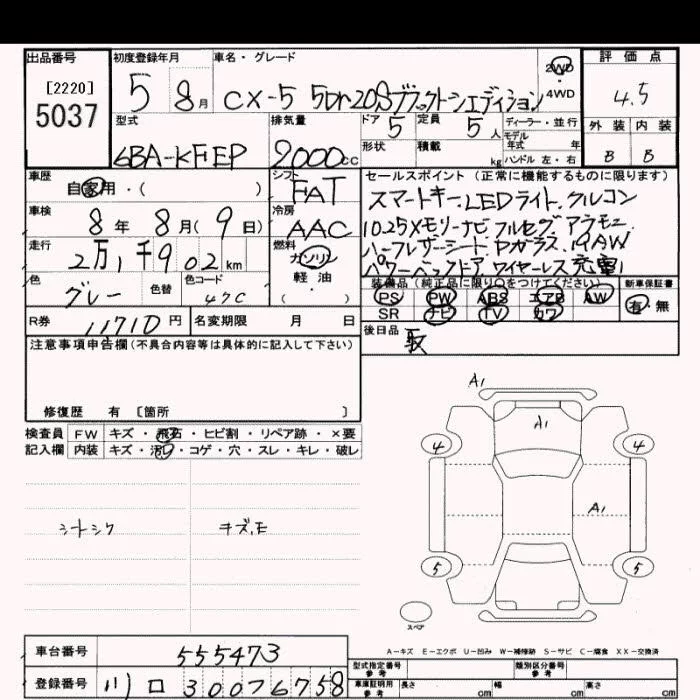 出品番号 初度登録年月 車名・グレード 2WD・4WD 評価点
[2220]
5037
5 8月 CX-5 5Dr 20Sブラックトーンエディション 4.5
型式 排気量 ドア 定員 ディーラー・並行 外装 内装
5 5人 モデル年式 年
6BA-KFEP 2000cc 形状 積載 kg ハンドル 左・右 B B
車歴 シフト セールスポイント (正常に機能するものに限ります)
自家用・( ) FAT スマートキー、LEDライト、クルコン
車検 冷房 10.25Xモリーナビ、フルセグ、アラモニ
8年 8月(9日) AAC ハーフレザーシート、Pガラス、19AW
走行 燃料 パワーバックドア、ワイヤーレス充電
2万1千902km ガソリン・軽油
色 色替 色コード 装備品(純正品に限り○をつけてください) 新車保証書
グレー 47C PS PW ABS エアB AW 有・無
SR ナビ TV カワ
R券 11710円 名変期限 月 日 後日品 取
注意事項申告欄(不具合内容等は具体的に記入して下さい)
修復歴 有 [箇所 ]
検査員 FW キズ・飛石・ヒビ割・リペア跡・×要
記入欄 内装 キズ・汚レ・コゲ・穴・スレ・キレ・破レ
シートシワ キズ、モ
A1
A1
4 4
A1
5 5
スペア
A-キズ E-エクボ U-凹み W-補修跡 S-サビ C-腐食 XX-交換済
車台番号 555473
型式指定番号 参考 類別区分番号 参考
登録番号 川口 300 76758
車庫証明用 参考 長さ cm 幅 cm 高さ cm